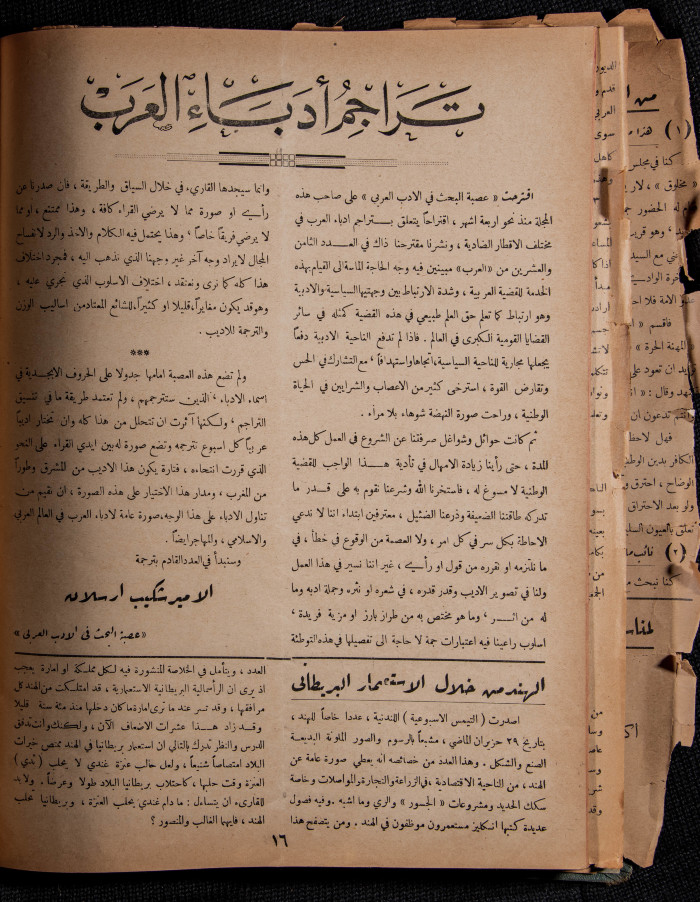 تراجم أدباء العرب
اقترحت « عصبة البحث في الادب العربي » على صاحب هذه
المجلة منذ نحو اربعة اشهر ، اقتراحاً يتعلق بتراجم ادباء العرب في
مختلف الاقطار الضادية ، ونشرنا مقترحنا ذاك في العدد الثامن
والعشرين من «العرب» مبينين فيه وجه الحاجة الماسة الى القيام بهذه
الخدمة للقضية العربية ، وشدة الارتباط بين وجهتيها السياسية والادبية
وهو ارتباط كما تعلم حق العلم طبيعي في هذه القضية كمثله في سائر
القضايا القومية الكبرى في العالم . فاذا لم تدفع الناحية الادبية دفعاً
يجعلها مجارية للناحية السياسية، اتجاها واستهدافاً ، مع التشارك في الحس
وتقارض القوة ، استرخى كثير من الاعصاب والشرايين في الحياة
الوطنية ، وراحت صورة النهضة شوهاء بلا مراء .
ثم كانت حوائل وشواغل صرفتنا عن الشروع في العمل كل هذه
المدة ، حتى رأينا زيادة الامهال في تأدية هذا الواجب للقضية
الوطنية لا مسوغ له ، فاستخرنا الله وشرعنا نقوم به على قدر ما
تدركه طاقتنا الضعيفة وذرعنا الضئيل ، معترفين ابتداء اننا لا ندعي
الاحاطة بكل سر في كل امر ، ولا العصمة من الوقوع في خطأ ، في
ما نلتزمه او نقرره من قول او رأي ، غير اننا نسير في هذا العمل
ولنا في تصوير الاديب وقدر قدره ، في شعره او نثره وجملة ادبه وما
له من اثر ، وما هو مختص به من طراز بارز او مزية فريدة ،
اسلوب راعينا فيه اعتبارات جمة لا حاجة الى تفصيلها في هذه التوطئة
وانما سيجدها القارىء في خلال السياق والطريقة ، فان صدرنا عن
رأي او صورة مما لا يرضي القراء كافة ، وهذا ممتنع ، او مما
لا يرضي فريقاً خاصاً ، وهذا يحتمل فيه الكلام والاخذ والرد لانفساح
المجال لايراد وجه آخر غير وجهنا الذي نذهب اليه ، فمجرد اختلاف
هذا كله كما نرى ونعتقد ، اختلاف الاسلوب الذي نجري عليه ،
وهو قد يكون مغايراً، قليلا او كثيراً، للشائع المعتاد من اساليب الوزن
والترجمة للاديب .
***
ولم تضع هذه العصبة امامها جدولا على الحروف الابجدية في
اسماء الادباء ، الذين ستترجمهم ، ولم تعتمد طريقة ما في تنسيق
التراجم ، ولكنها آثرت ان تتحلل من هذا كله وان تختار اديباً
عربياً كل اسبوع تترجمه وتضع صورة له بين ايدي القراء على النحو
الذي قررت انتحاءه ، فتارة يكون هذا الاديب من المشرق وطوراً
من المغرب ، ومدار هذا الاختيار على هذه الصورة ، ان نقيم من
تناول الادباء على هذا الوجه، صورة عامة لادباء العرب في العالم العربي
والاسلامي ، والمهاجر ايضاً .
وسنبدأ في العدد القادم بترجمة
الامير شكيب ارسلان
«عصبة البحث في الادب العربي»
الهند من خلال الاستعمار البريطاني
اصدرت ( التيمس الاسبوعية ) اللندنية ، عددا خاصاً للهند ،
بتاريخ ٢٩ حزيران الماضي ، مشبعاً بالرسوم والصور الملونة البديعة
الصنع والشكل . وهذا العدد من خصائصه انه يعطي صورة عامة عن
الهند ، من الناحية الاقتصادية ، في الزراعة والتجارة والمواصلات وخاصة
سكك الحديد ومشروعات « الجسور » والري وما اشبه . وفيه فصول
عديدة كتبها انكليز مستعمرون موظفون في الهند . ومن يتصفح هذا
العدد ، ويتأمل في الخلاصة المنشورة فيه لكل مملكة او امارة يعجب
اذ يرى ان الرأسمالية البريطانية الاستعمارية ، قد امتلكت من الهند كل
مرافقها ، وقد تسر عند ما ترى امارة ما كان دخلها منذ مئة سنة قليلا
وقد زاد هذا عشرات الاضعاف الآن ، ولكنك وانت تدقق
الدرس والنظر تدرك بالتالي ان استعمار بريطانيا في الهند تمتص خيرات
البلاد امتصاصاً شنيعاً ، ولعل حالب عنزة غندي لا يحلب ( ثدي )
العنزة وقت حلبها ، كاحتلاب بريطانيا البلاد طولا وعرضاً . ولابد
للقارىء ان يتساءل : ما دام غندي يحلب العنزة ، وبريطانيا تحلب
الهند ، فايهما الغالب والمنصور ؟
١٦